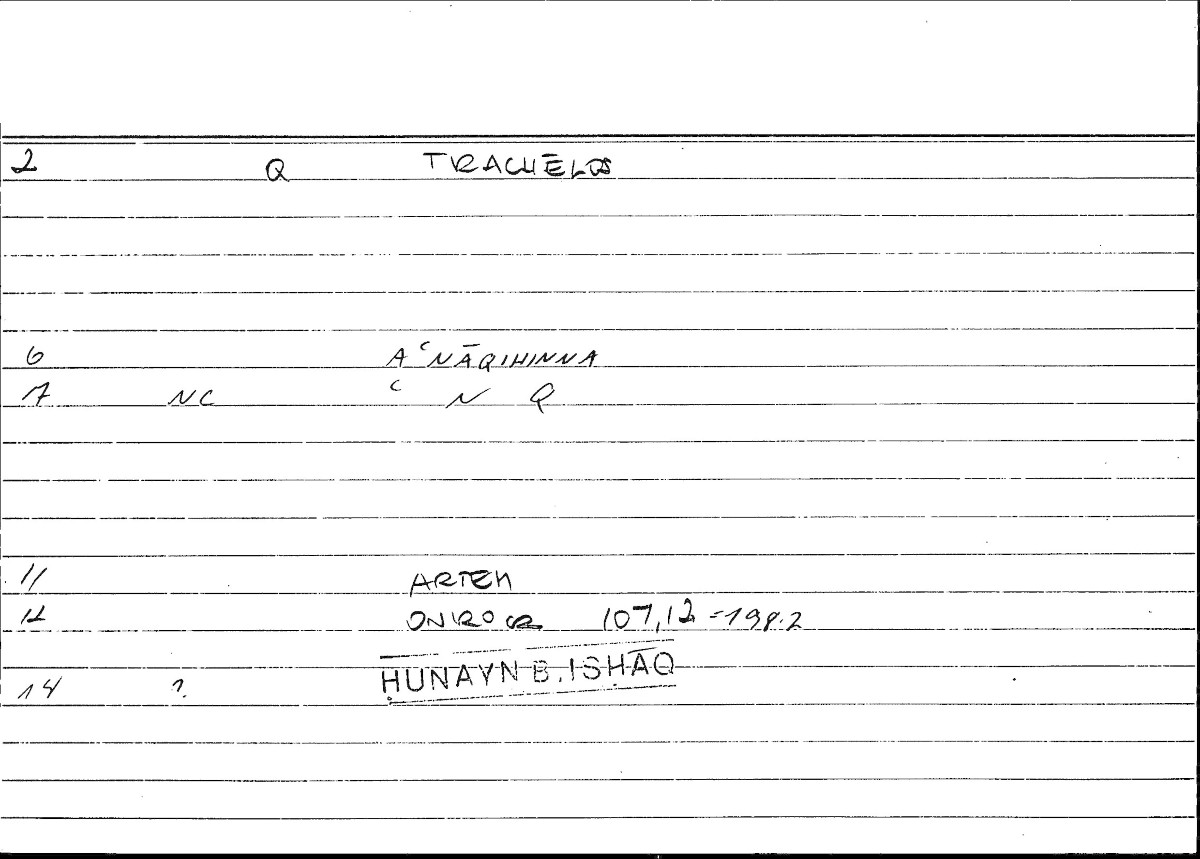 2 Q TRACHĒLOS
6 AʿNĀQIHINNA
7 NC ʿ N Q
11 ARTEM
12 ONIROCR 107,12 = 198.2
14 ? ḤUNAYN B. ISḤĀQ